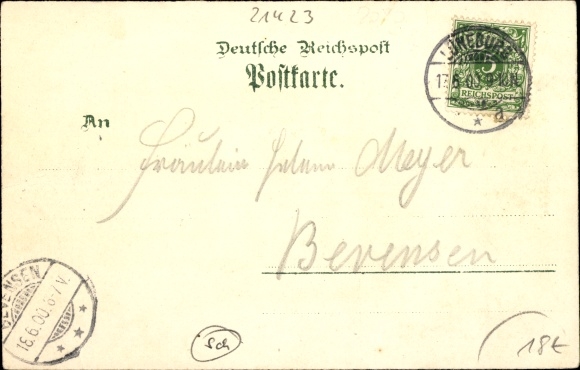 21423
Deutsche Reichspost
Postkarte.
LÜNEBURG
5
17.6.00
REICHSPOST
a
An
Fräulein Helene Meyer
Bevensen
BEVENSEN
18.6.00. 6-7 V.
Sch
18€